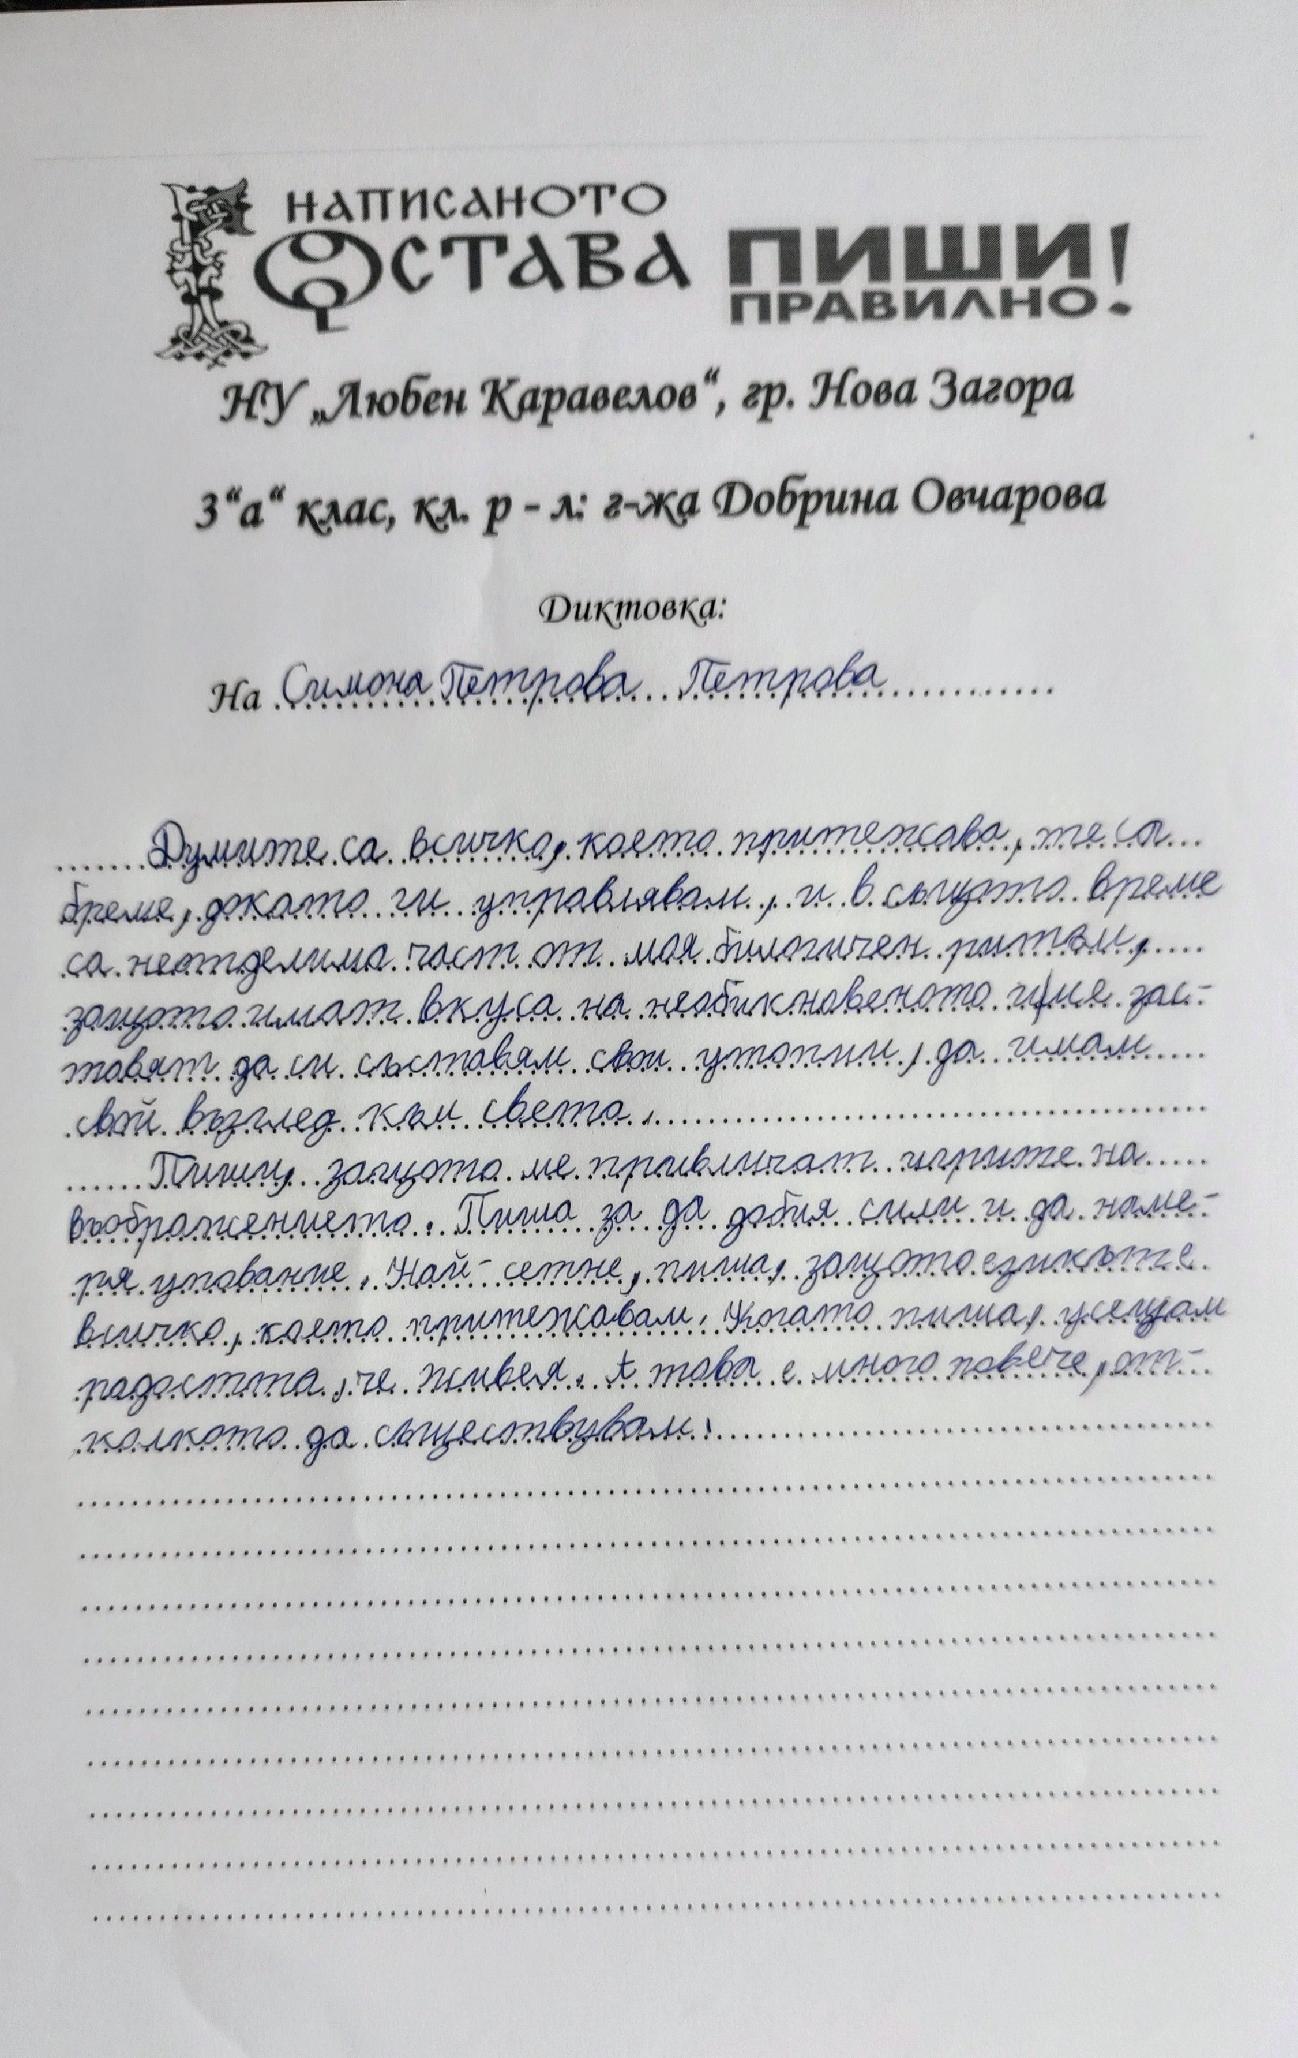 НАПИСАНОТО
ОСТАВА
ПИШИ!
ПРАВИЛНО
НУ „Любен Каравелов“, гр. Нова Загора
3“а“ клас, кл. р - л: г-жа Добрина Овчарова
Диктовка:
На Симона Петрова Петрова
Думите са всичко, което притежава, те са
бреме, докато ги управлявам, и в същото време
са неотделима част от моя биологичен ритъм,
защото имат вкуса на необикновеното и ме зас-
тавят да си съставям свои утопии, да имам
свой възглед към света.
Пиши, защото ме привличат игрите на
въображението. Пиша за да добия сили и да наме-
ря упование. Най- сетне, пиша, защото езикът е
всичко, което притежавам. Когато пиша, усещам
радостта, че живея. А това е много повече, от-
колкото да съществувам.